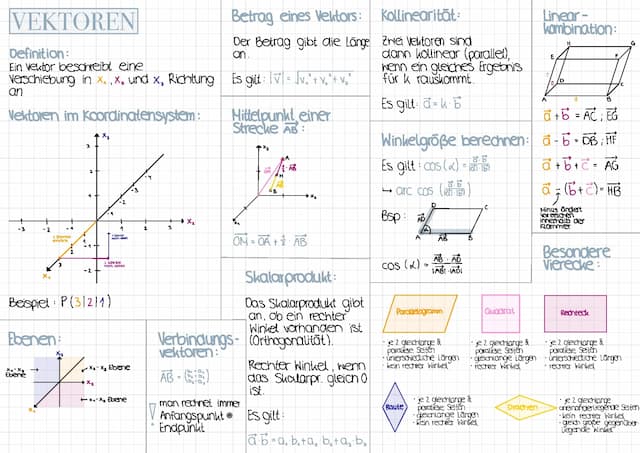 VEKTOREN
Definition:
Ein Vektor beschreibt eine
Verschiebung in x₁, x₂ und x₃ Richtung
an
Vektoren im Koordinatensystem:
x₃
x₂
x₁
Beispiel: P(3|2|1)
Ebenen:
x₂-x₃ Ebene
x₁-x₂ Ebene
Verbindungs-
vektoren:
man rechnet immer
Anfangspunkt
Endpunkt
Betrag eines Vektors:
Der Betrag gibt die Länge
an.
Es gilt: |v⃗| = √v₁² + v₂² + v₃²
Mittelpunkt einer
Strecke AB:
OM = OA + ½ · AB
Skalarprodukt:
Das Skalarprodukt gibt
an, ob ein rechter
Winkel vorhanden ist
(Orthogonalität).
Rechter Winkel, wenn
das Skalarpr. gleich 0
ist.
Es gilt:
a⃗·b⃗ = a₁·b₁+a₂·b₂+a₃·b₃
Kollinearität:
Zwei Vektoren sind
dann kollinear (parallel),
wenn ein gleiches Ergebnis
für k rauskommt.
Es gilt: a⃗ = k · b⃗
Winkelgröße berechnen:
Es gilt: cos(α) =
↳ arc cos
Bsp:
D
C
A
B
AD
AB
cos(α) = AB · AD
|AB|·|AD|
Linear-
kombination:
H
G
E
F
D
C
A
B
a⃗ + b⃗ = AC ; EG
a⃗ - b⃗ = DB ; HF
a⃗ + b⃗ + c⃗ = AG
a⃗ - (b⃗ + c⃗) = HB
Minus ändert
Vorzeichen
innerhalb der
Klammer
Besondere
Vierecke:
Parallelogramm
· je 2 gleichlange &
parallele Seiten
· unterschiedliche Längen
· kein rechter Winkel
Quadrat
· je 2 gleichlange &
parallele Seiten
· gleichlange Längen
· rechter Winkel
Rechteck
· je 2 gleichlange &
parallele Seiten
· unterschiedliche Längen
· rechter Winkel
Raute
· je 2 gleichlange &
parallele Seiten
· gleichlange Längen
· kein rechter Winkel
Drachen
· je 2 gleichlange
aneinanderliegende Seiten
· kein rechter Winkel
· gleich große gegenüber
liegende Winkel